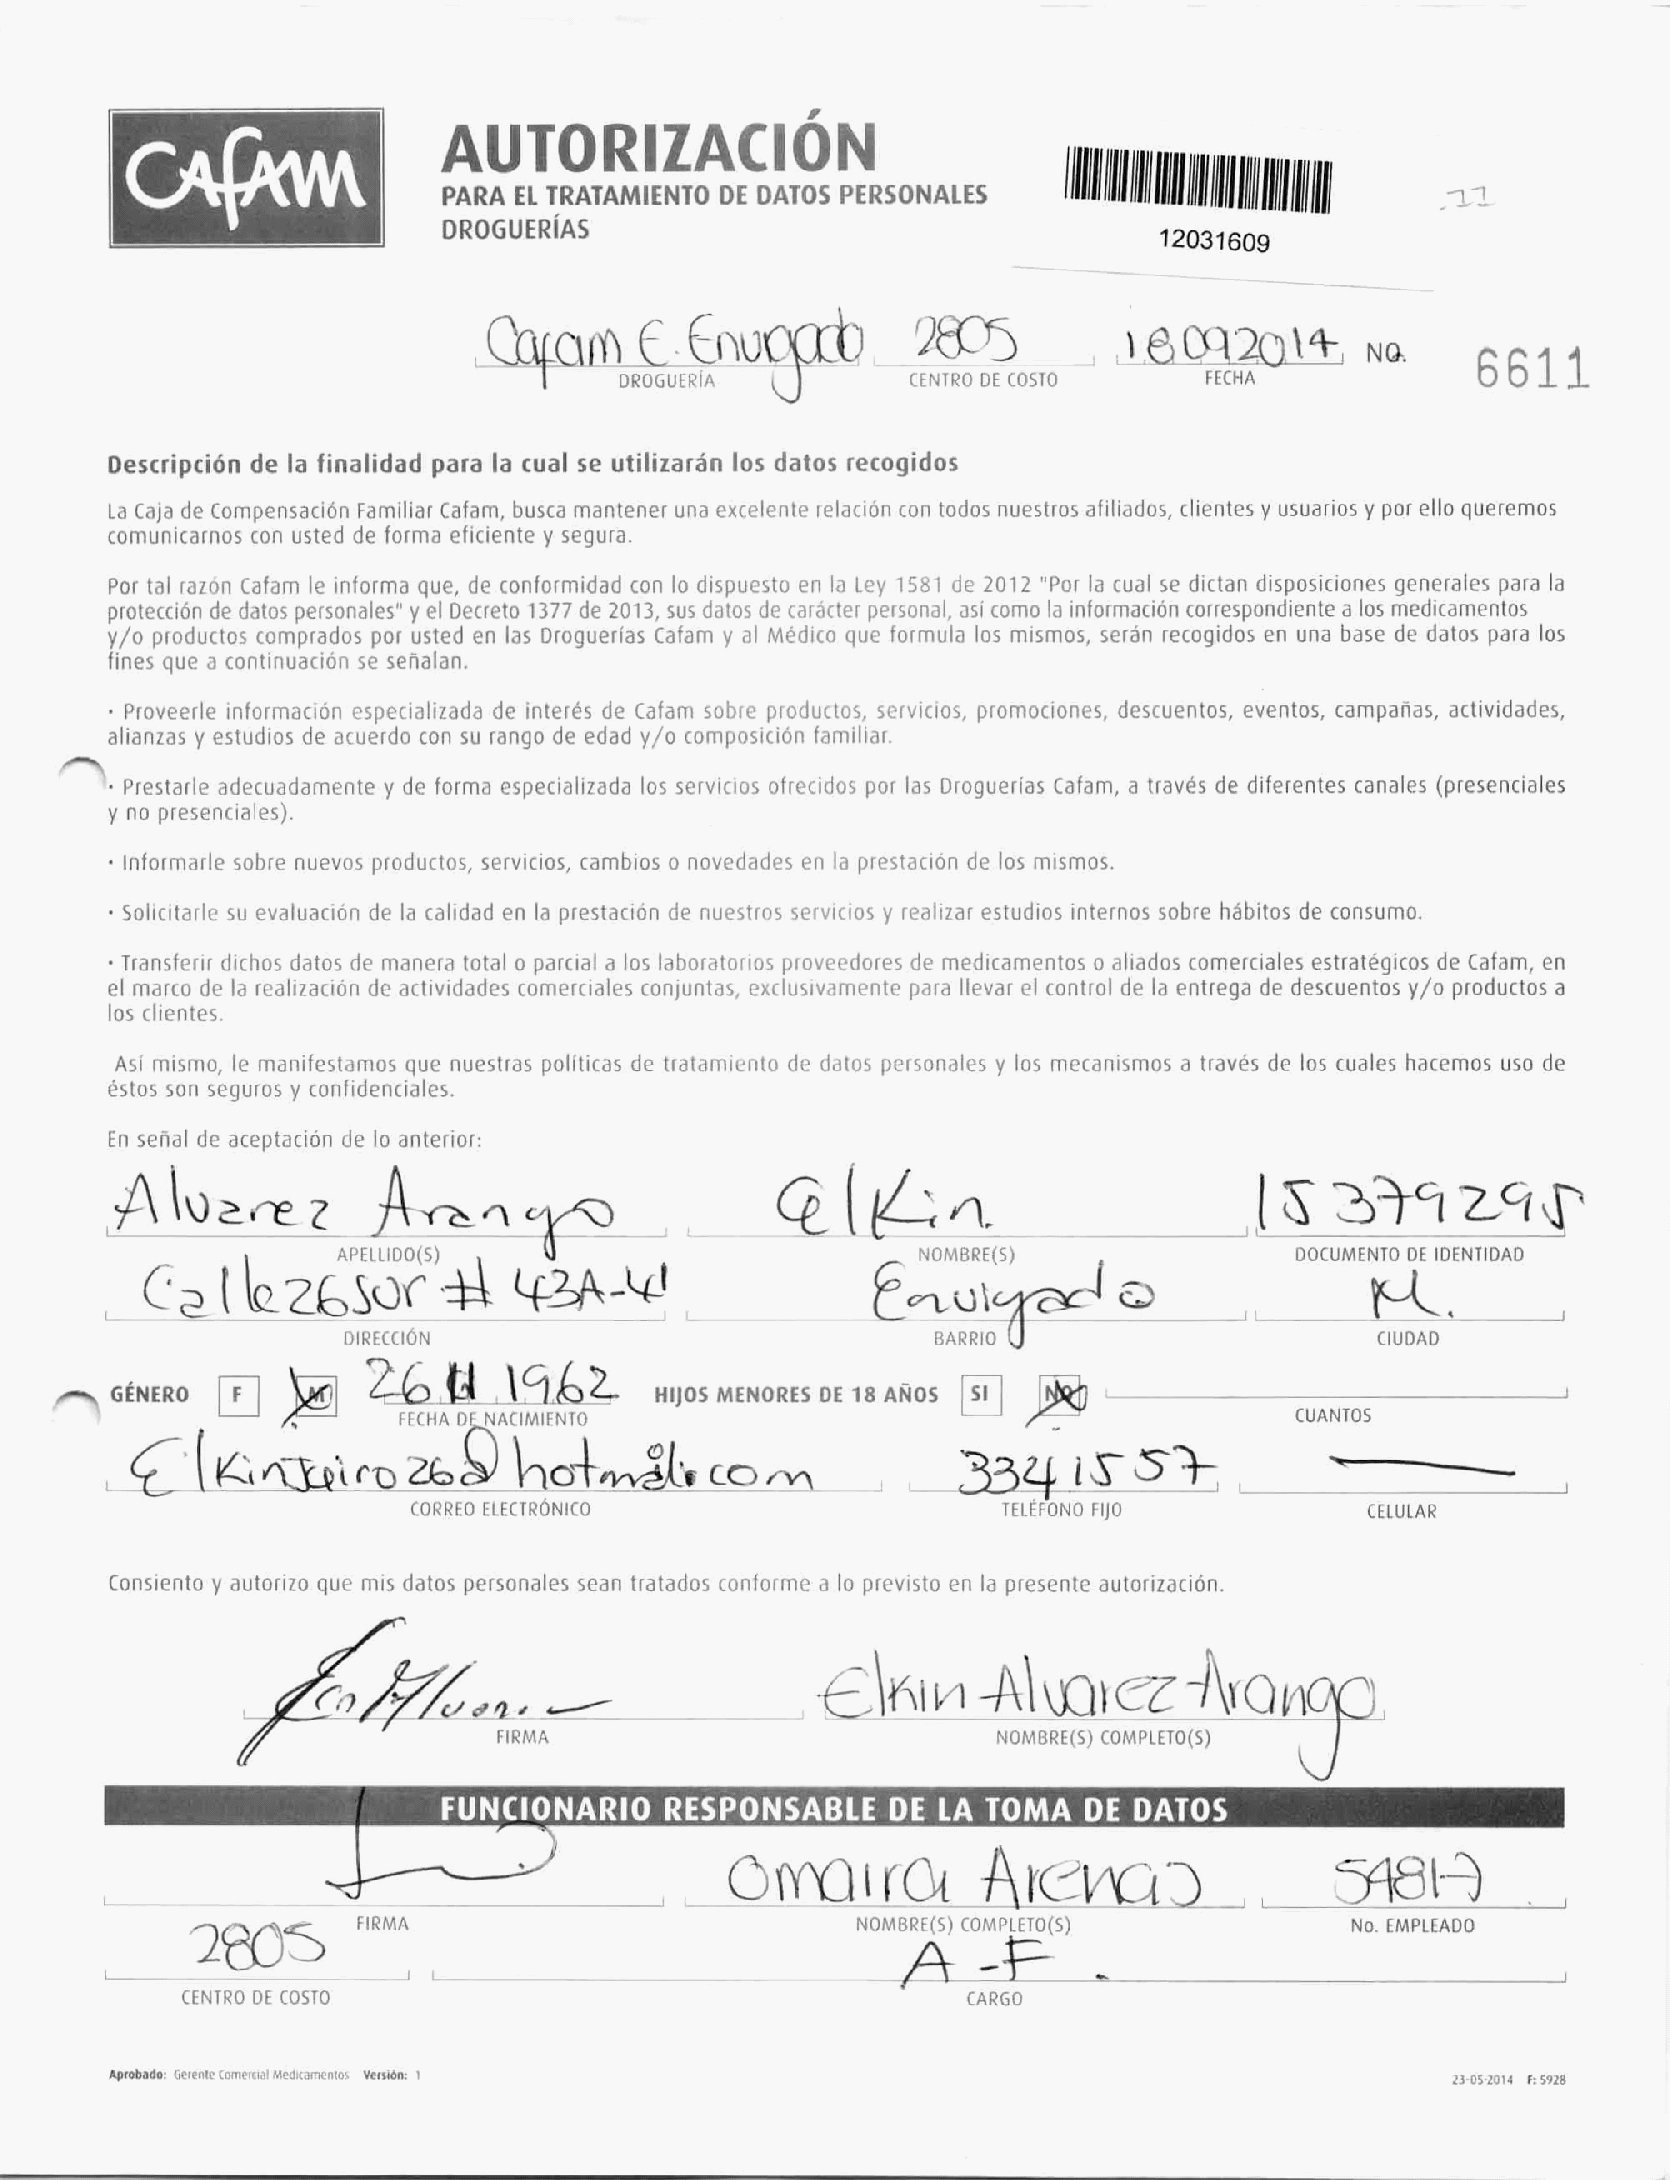 CAfAM
AUTORIZACIÓN
PARA EL TRATAMIENTO DE DATOS PERSONALES
DROGUERÍAS
12031609
.11
Cafam E. Envigado 2805 18092014 NO. 6611
DROGUERÍA CENTRO DE COSTO FECHA
Descripción de la finalidad para la cual se utilizarán los datos recogidos
La Caja de Compensación Familiar Cafam, busca mantener una excelente relación con todos nuestros afiliados, clientes y usuarios y por ello queremos
comunicarnos con usted de forma eficiente y segura.
Por tal razón Cafam le informa que, de conformidad con lo dispuesto en la Ley 1581 de 2012 "Por la cual se dictan disposiciones generales para la
protección de datos personales" y el Decreto 1377 de 2013, sus datos de carácter personal, así como la información correspondiente a los medicamentos
y/o productos comprados por usted en las Droguerías Cafam y al Médico que formula los mismos, serán recogidos en una base de datos para los
fines que a continuación se señalan.
· Proveerle información especializada de interés de Cafam sobre productos, servicios, promociones, descuentos, eventos, campañas, actividades,
alianzas y estudios de acuerdo con su rango de edad y/o composición familiar.
· Prestarle adecuadamente y de forma especializada los servicios ofrecidos por las Droguerías Cafam, a través de diferentes canales (presenciales
y no presenciales).
· Informarle sobre nuevos productos, servicios, cambios o novedades en la prestación de los mismos.
· Solicitarle su evaluación de la calidad en la prestación de nuestros servicios y realizar estudios internos sobre hábitos de consumo.
· Transferir dichos datos de manera total o parcial a los laboratorios proveedores de medicamentos o aliados comerciales estratégicos de Cafam, en
el marco de la realización de actividades comerciales conjuntas, exclusivamente para llevar el control de la entrega de descuentos y/o productos a
los clientes.
Así mismo, le manifestamos que nuestras políticas de tratamiento de datos personales y los mecanismos a través de los cuales hacemos uso de
éstos son seguros y confidenciales.
En señal de aceptación de lo anterior:
Alvarez Arango Elkin 15379295
APELLIDO(S) NOMBRE(S) DOCUMENTO DE IDENTIDAD
Calle 26 sur # 43A-41 Envigado M.
DIRECCIÓN BARRIO CIUDAD
GÉNERO F M 26 1962 HIJOS MENORES DE 18 AÑOS SI NO
FECHA DE NACIMIENTO CUANTOS
3341557
CORREO ELECTRÓNICO TELÉFONO FIJO CELULAR
Consiento y autorizo que mis datos personales sean tratados conforme a lo previsto en la presente autorización.
Elkin Alvarez Arango
FIRMA NOMBRE(S) COMPLETO(S)
FUNCIONARIO RESPONSABLE DE LA TOMA DE DATOS
Omaira Arenas
FIRMA NOMBRE(S) COMPLETO(S) No. EMPLEADO
2805 A-F.
CENTRO DE COSTO CARGO
Aprobado: Gerente Comercial Medicamentos Versión: 1
23-05-2014 F: 5928